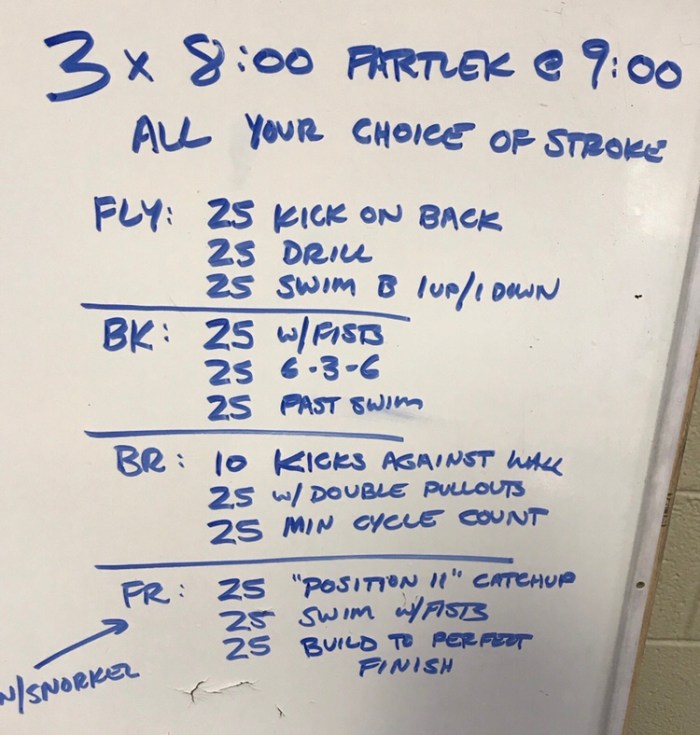 3 x 8:00 FARTLEK @ 9:00
ALL YOUR CHOICE OF STROKE
FLY: 25 KICK ON BACK
25 DRILL
25 SWIM B 1UP/1 DOWN
BK: 25 W/FISTS
25 6-3-6
25 FAST SWIM
BR: 10 KICKS AGAINST WALL
25 W/ DOUBLE PULLOUTS
25 MIN CYCLE COUNT
FR: 25 "POSITION 11" CATCHUP
25 SWIM W/FISTS
25 BUILD TO PERFECT
FINISH
W/SNORKEL